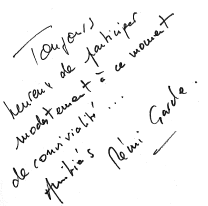 Toujours
heureux de participer
modestement à ce moment
de convivialité...
Amitiés Rémi Garde.